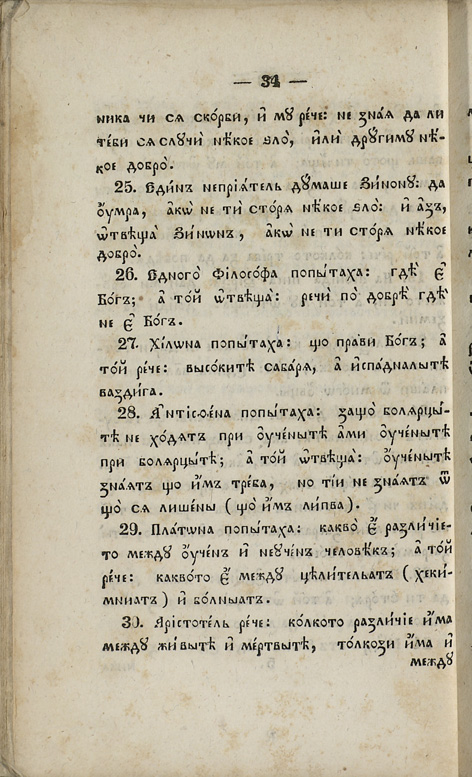 — 34 —
ника чи сѧ ско́рби, и҆ мꙋ ре́че: не зна́ѧ да ли
те́би сѧ слꙋчѝ нѣ́кое ѕло̀, и҆лѝ дрꙋ́гимꙋ нѣ́-
кое добро̀.
25. Е҆ди́нъ непрїѧ́тель дꙋ́маше Зи́нонꙋ: да
ᲂу҆́мра, а҆кѡ̀ не тѝ сто́рѧ нѣ́кое ѕло̀: и҆ а҆́зъ,
ѿвѣща̀ Зи́нѡнъ, а҆кѡ̀ не тѝ сто́рѧ нѣ́кое
добро̀.
26. Е҆дного̀ Фїлосо́фа попы́таха: гдѣ̀ є҆̀
Бо́гъ; а҆ то́й ѿвѣща̀: речѝ по̀ добрѣ̀ гдѣ̀
не є҆̀ Бо́гъ.
27. Хі́лѡна попы́таха: що пра́ви Бо́гъ; а҆
то́й ре́че: высо́ките саба́рѧ, а҆ и҆спа́дналыте
вазди́га.
28. А҆нтїсѳе́на попы́таха: защо̀ болѧрцы́-
те не хо́дѧтъ при ᲂу҆че́ныте а҆ми ᲂу҆че́ныте
при болѧрцы́те; а҆ то́й ѿвѣща̀: ᲂу҆че́ныте
зна́ѧтъ що и҆́мъ тре́ба, но ті́и не зна́ѧтъ ѿ
що̀ сѧ лише́ны (що̀ и҆́мъ ли́пва).
29. Пла́тѡна попы́таха: какво̀ є҆̀ разли́чїе-
то междꙋ ᲂу҆че́нъ и҆ неꙋче́нъ человѣ́къ; а҆ то́й
ре́че: какво́то є҆̀ междꙋ цѣли́тельатъ (хеки́-
мниатъ) и҆ бо́лныатъ.
30. А҆рїсто́тель ре́че: ко́лкото разли́чїе и҆́ма
междꙋ жи́выте и҆ ме́ртвыте, то́лкози и҆́ма и҆
междꙋ